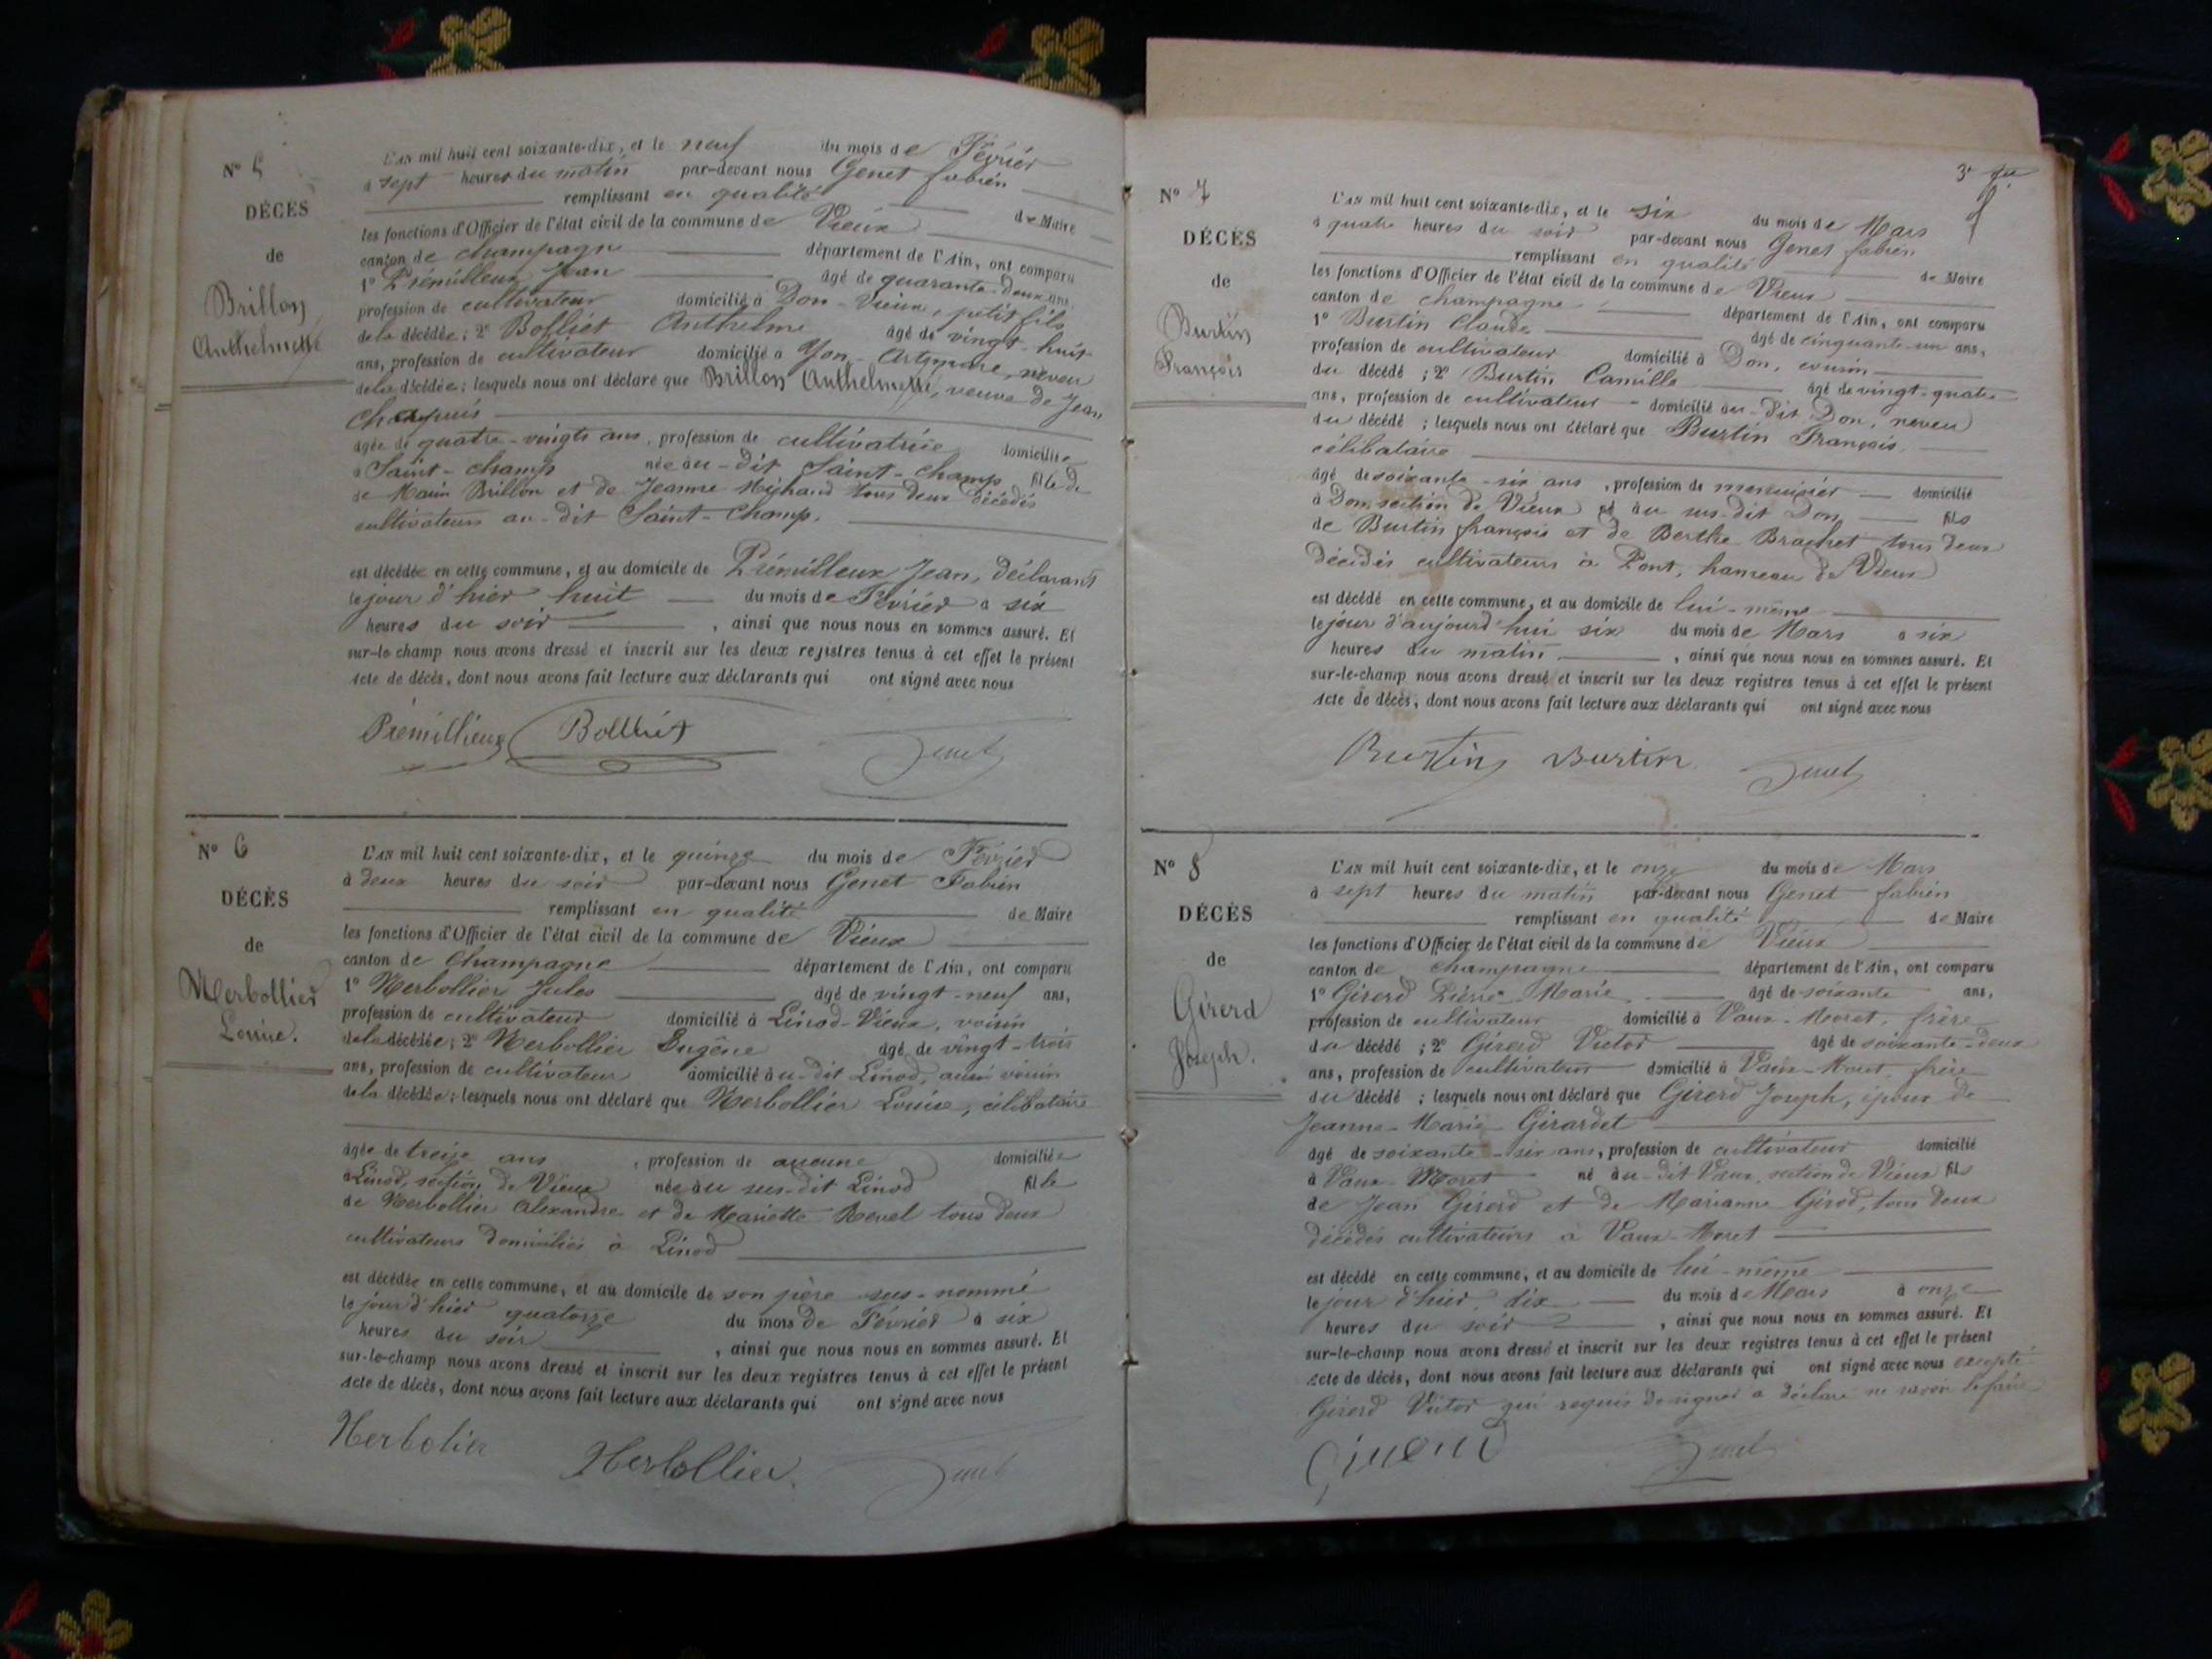 N° 5
DÉCÈS
de
Brillon
Anthelmette
L'AN mil huit cent soixante-dix, et le neuf du mois de Février
à sept heures du matin par-devant nous Genet fabien
remplissant en qualité de Maire
les fonctions d'Officier de l'état civil de la commune de Vieux
canton de champagne département de l'Ain, ont comparu
1° Prémilleux Jean âgé de quarante-deux ans,
profession de cultivateur domicilié à Don-Vieux, petit fils
de la décédée; 2° Bolliet Anthelme âgé de vingt-huit
ans, profession de cultivateur domicilié à Yon-Artemare, neveu
de la décédée; lesquels nous ont déclaré que Brillon Anthelmette, veuve de Jean
Chapuis
âgée de quatre-vingts ans, profession de cultivatrice domiciliée
à Saint-champ née au-dit Saint-champ fille de
de Marin Brillon et de Jeanne tous deux décédés
cultivateurs au-dit Saint-Champ.
est décédée en cette commune, et au domicile de Prémilleux Jean, déclarant
le jour d'hier huit du mois de Février à six
heures du soir, ainsi que nous nous en sommes assuré. Et
sur-le-champ nous avons dressé et inscrit sur les deux registres tenus à cet effet le présent
Acte de décès, dont nous avons fait lecture aux déclarants qui ont signé avec nous
Prémillieux Bolliet Genet
N° 6
DÉCÈS
de
Herbollier
Louise.
L'AN mil huit cent soixante-dix, et le quinze du mois de Février
à deux heures du soir par-devant nous Genet Fabien
remplissant en qualité de Maire
les fonctions d'Officier de l'état civil de la commune de Vieux
canton de Champagne département de l'Ain, ont comparu
1° Herbollier Jules âgé de vingt-neuf ans,
profession de cultivateur domicilié à Linod-Vieux, voisin
de la décédée; 2° Herbollier Eugène âgé de vingt-trois
ans, profession de cultivateur domicilié au-dit Linod, aussi voisin
de la décédée; lesquels nous ont déclaré que Herbollier Louise, célibataire
âgée de treize ans, profession de aucune domiciliée
à Linod, section de Vieux née au sus-dit Linod fille
de Herbollier Alexandre et de Mariette Revel tous deux
cultivateurs domiciliés à Linod
est décédée en cette commune, et au domicile de son père sus-nommé
le jour d'hier quatorze du mois de Février à six
heures du soir, ainsi que nous nous en sommes assuré. Et
sur-le-champ nous avons dressé et inscrit sur les deux registres tenus à cet effet le présent
Acte de décès, dont nous avons fait lecture aux déclarants qui ont signé avec nous
Herbolier Herbollier Genet
3e
N° 7
DÉCÈS
de
Burtin
François
L'AN mil huit cent soixante-dix, et le six du mois de Mars
à quatre heures du soir par-devant nous Genet fabien
remplissant en qualité de Maire
les fonctions d'Officier de l'état civil de la commune de Vieux
canton de champagne département de l'Ain, ont comparu
1° Burtin Claude âgé de cinquante-un ans,
profession de cultivateur domicilié à Don, cousin
du décédé; 2° Burtin Camille âgé de vingt-quatre
ans, profession de cultivateur domicilié au-dit Don, neveu
du décédé; lesquels nous ont déclaré que Burtin François,
célibataire
âgé de soixante-six ans, profession de menuisier domicilié
à Don, section de Vieux né au sus-dit Don fils
de Burtin françois et de Berthe Brachet tous deux
décédés cultivateurs à Pont, hameau de Vieux
est décédé en cette commune, et au domicile de lui-même
le jour d'aujourd'hui six du mois de Mars à six
heures du matin, ainsi que nous nous en sommes assuré. Et
sur-le-champ nous avons dressé et inscrit sur les deux registres tenus à cet effet le présent
Acte de décès, dont nous avons fait lecture aux déclarants qui ont signé avec nous
Burtin Burtin Genet
N° 8
DÉCÈS
de
Girerd
Joseph.
L'AN mil huit cent soixante-dix, et le onze du mois de Mars
à sept heures du matin par-devant nous Genet fabien
remplissant en qualité de Maire
les fonctions d'Officier de l'état civil de la commune de Vieux
canton de champagne département de l'Ain, ont comparu
1° Girerd Pierre-Marie âgé de soixante ans,
profession de cultivateur domicilié à Vaux-Moret, frère
du décédé; 2° Girerd Victor âgé de soixante-deux
ans, profession de cultivateur domicilié à Vaux-Moret, frère
du décédé; lesquels nous ont déclaré que Girerd Joseph, époux de
Jeanne-Marie Girardet
âgé de soixante-six ans, profession de cultivateur domicilié
à Vaux-Moret né au-dit Vaux, section de Vieux fils
de Jean Girerd et de Marianne Girod, tous deux
décédés cultivateurs à Vaux-Moret
est décédé en cette commune, et au domicile de lui-même
le jour d'hier, dix du mois de Mars à onze
heures du soir, ainsi que nous nous en sommes assuré. Et
sur-le-champ nous avons dressé et inscrit sur les deux registres tenus à cet effet le présent
Acte de décès, dont nous avons fait lecture aux déclarants qui ont signé avec nous excepté
Girerd Victor qui requis de signer a déclaré ne savoir le faire
Girerd Genet